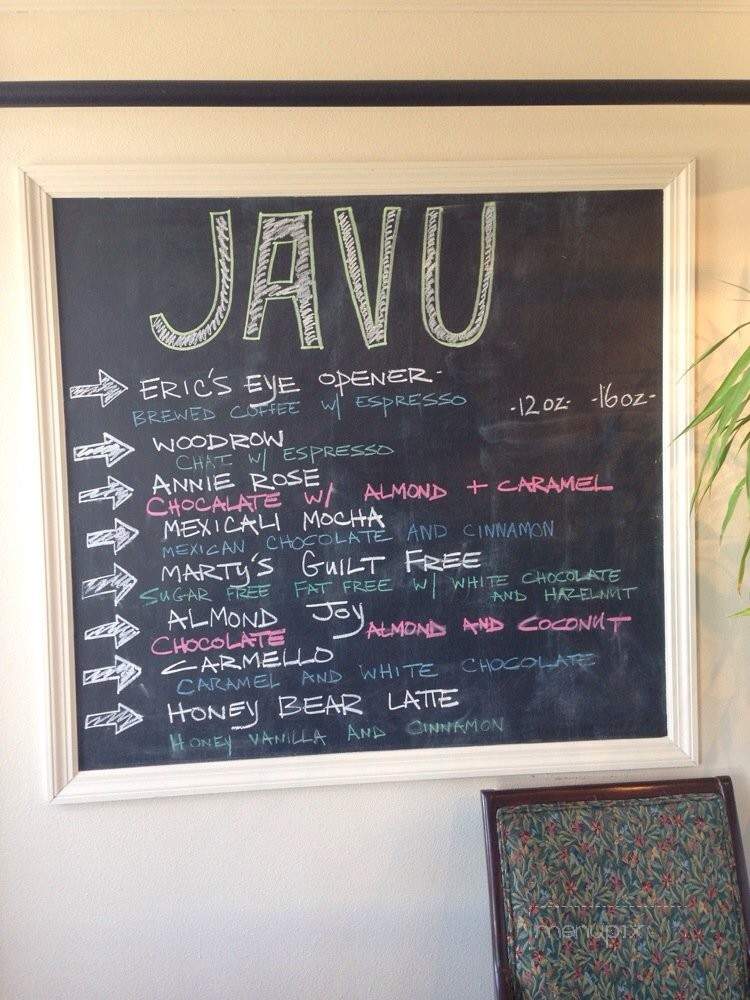 JAVU
ERIC'S EYE OPENER-
BREWED COFFEE W/ ESPRESSO
-12 OZ- -16 OZ-
WOODROW
CHAI W/ ESPRESSO
ANNIE ROSE
CHOCALATE W/ ALMOND + CARAMEL
MEXICALI MOCHA
MEXICAN CHOCOLATE AND CINNAMON
MARTY'S GUILT FREE
SUGAR FREE FAT FREE W/ WHITE CHOCOLATE
AND HAZELNUT
ALMOND JOY
CHOCOLATE ALMOND AND COCONUT
CARMELLO
CARAMEL AND WHITE CHOCOLATE
HONEY BEAR LATTE
HONEY VANILLA AND CINNAMON
menupix